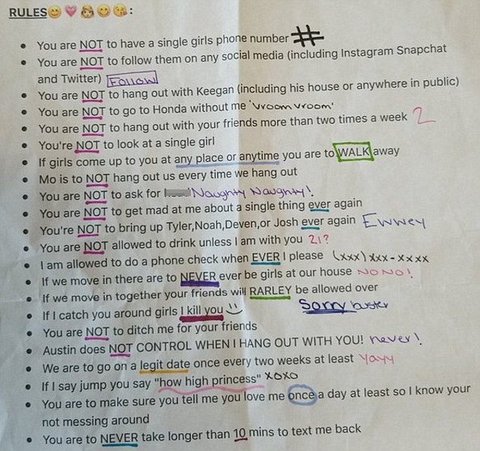 RULES😊💗👸😋😘:
You are NOT to have a single girls phone number #
You are NOT to follow them on any social media (including Instagram Snapchat
and Twitter) Follow
You are NOT to hang out with Keegan (including his house or anywhere in public)
You are NOT to go to Honda without me 'vroom vroom'
You are NOT to hang out with your friends more than two times a week 2
You're NOT to look at a single girl
If girls come up to you at any place or anytime you are to WALK away
Mo is to NOT hang out us every time we hang out
You are NOT to ask for Naughty Naughty!
You are NOT to get mad at me about a single thing ever again
You're NOT to bring up Tyler,Noah,Deven,or Josh ever again Ewwey
You are NOT allowed to drink unless I am with you 21?
I am allowed to do a phone check when EVER I please (xxx)xxx-xxxx
If we move in there are to NEVER ever be girls at our house NO NO!
If we move in together your friends will RARLEY be allowed over
If I catch you around girls I kill you Sorry buster
You are NOT to ditch me for your friends
Austin does NOT CONTROL WHEN I HANG OUT WITH YOU! never!
We are to go on a legit date once every two weeks at least Yayy
If I say jump you say "how high princess" xoxo
You are to make sure you tell me you love me once a day at least so I know your
not messing around
You are to NEVER take longer than 10 mins to text me back